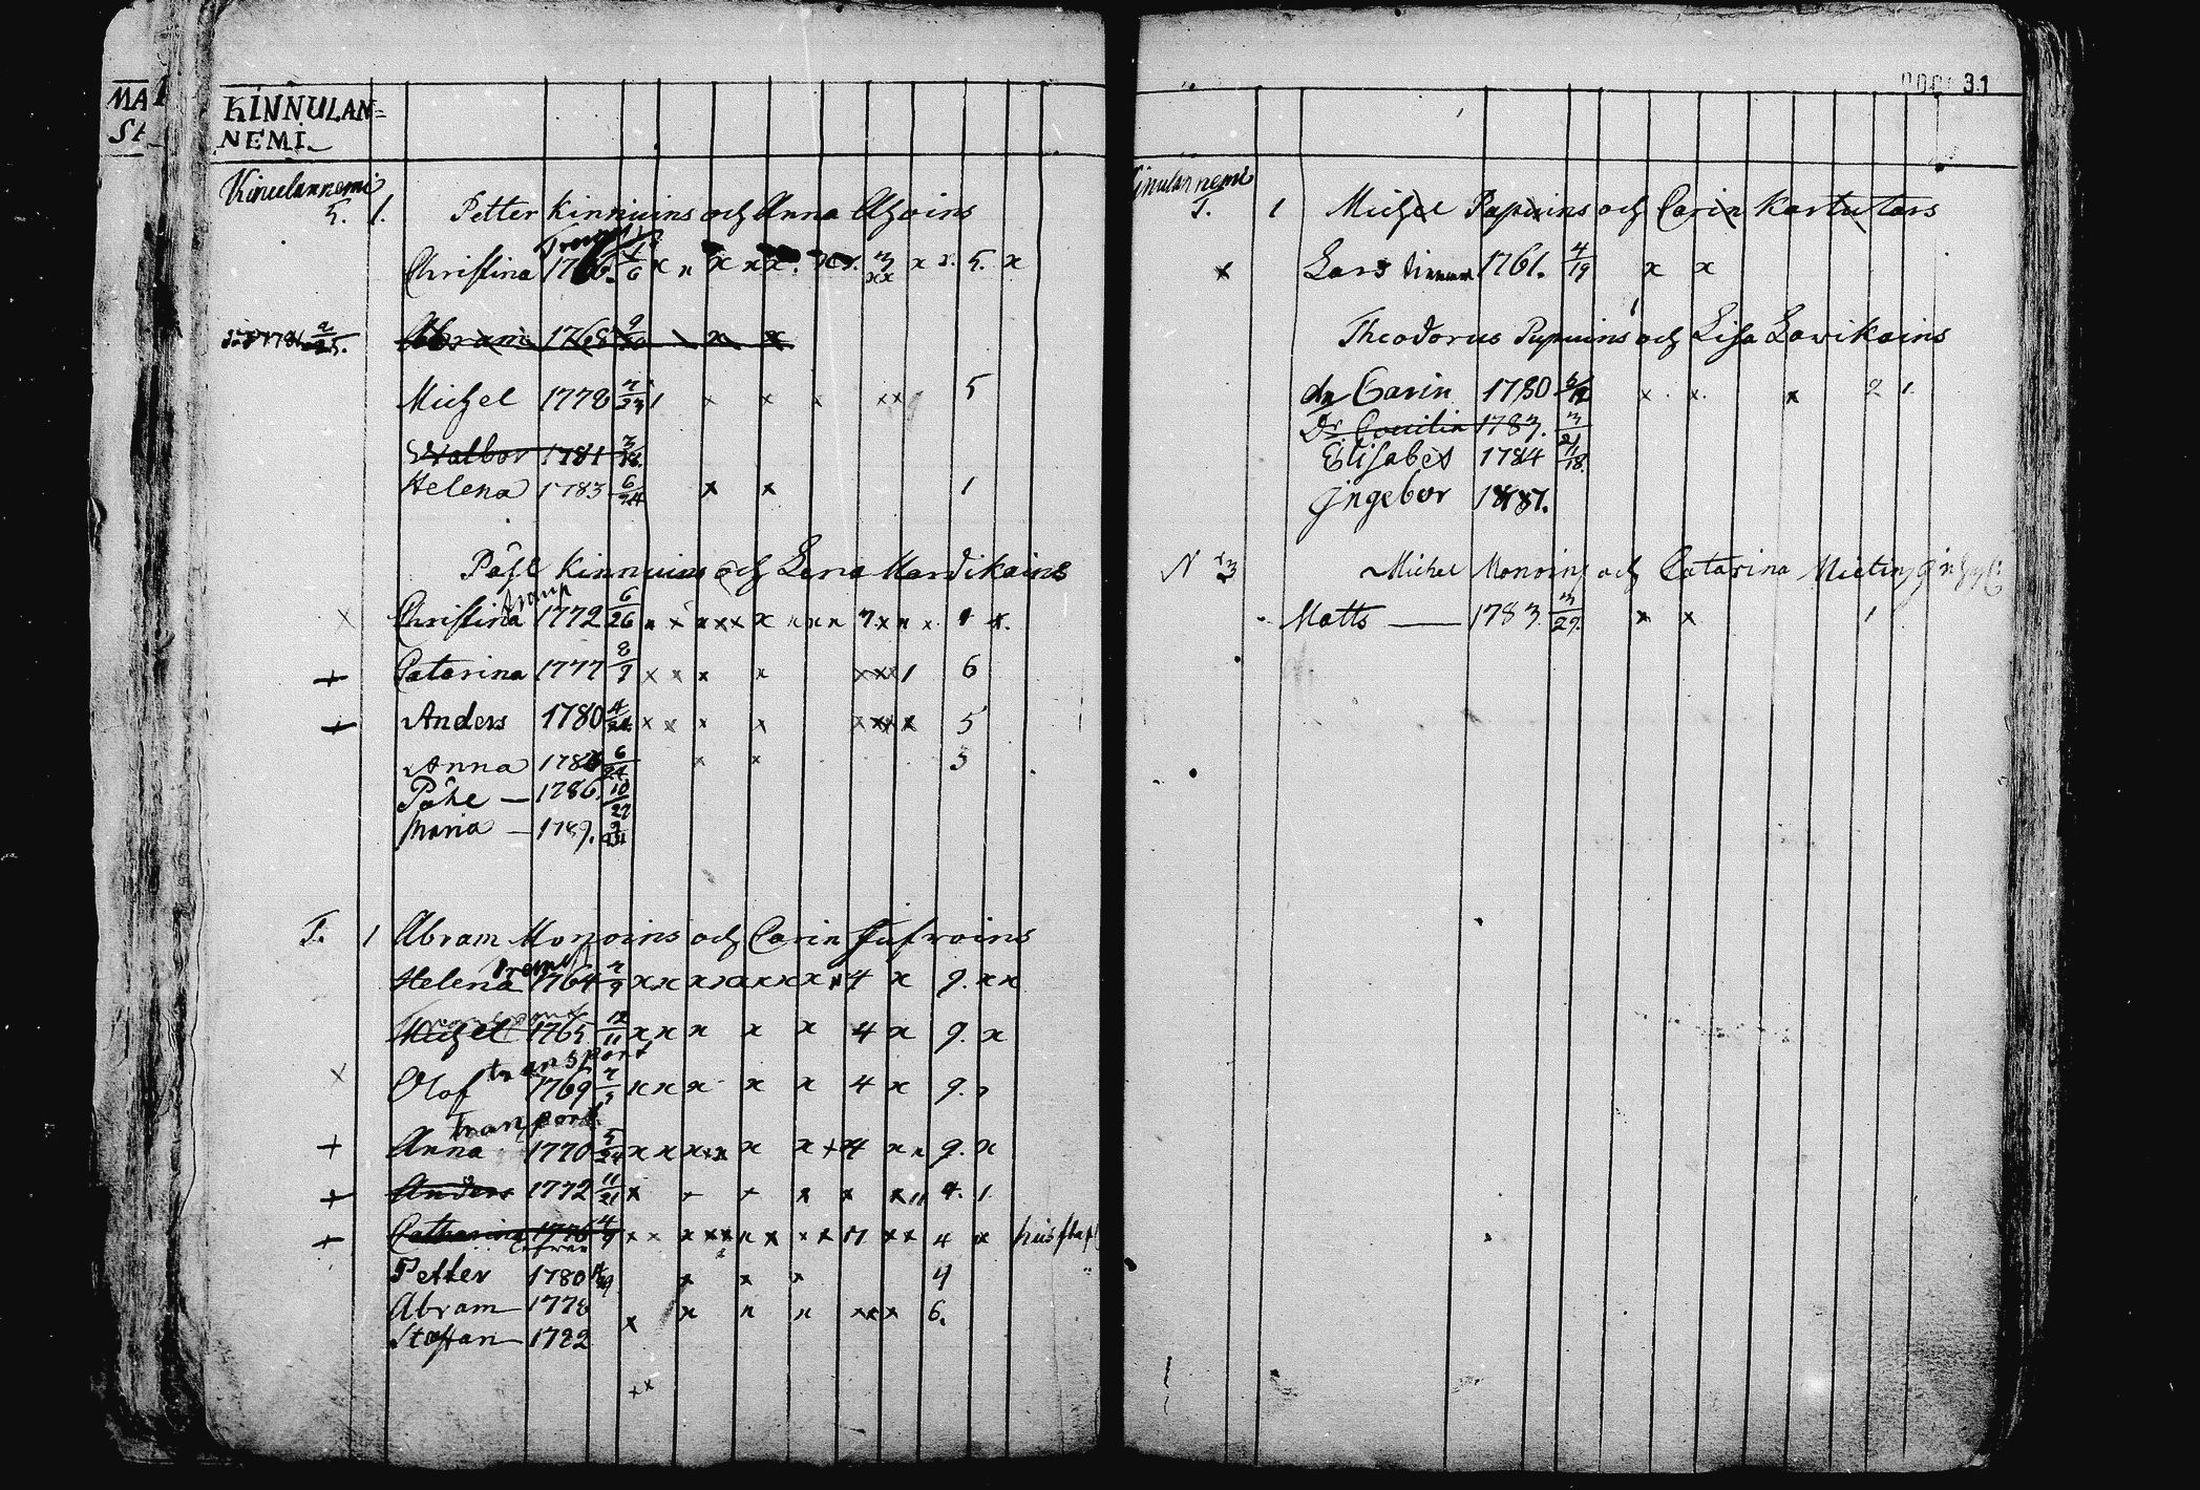 MA
KINNULAN=
NEMI.
Kinulannemi
5. 1. Petter Kinnuins och Anna Ahoins
Christina 1766. 1/6 x n x x x. x x. 3 xx x x. 5. x
Abram 1768 9/20 x x
Michel 1778 7/23 1 x x x xx 5
Walbor 1781 3/18.
Helena 1783 6/24 x x 1
Påhl Kinnuins och Lena Mardikains
transp
Christina 1772 6/26 n x n x x x n n n 7 x n x. 1 x.
+ Catarina 1777 8/9 x x x x x x x 1 6
+ Anders 1780 4/24 x x x x x x x x 5
Anna 1783 6/24 x x 3
Påhl — 1786. 10/27
Maria — 1789.
T. 1 Abram Monoins och Carin Jufwoins
Helena 1764 7/9 x x x x x x x x x 4 x 9. x x
Michel 1765 12/11 x x x x x 4 x 9. x
transport
x Olof 1769 x x x x x 4 x 9.
Transport
+ Anna 1770 5/24 x x x x x x x + 4 x n 9. x
+ Anders 1772 11/21 x + + x x x 11 4. 1
+ Catharina 1776 4/9 x x x x x n x x x 11 x x 4 x
Petter 1780 x x x 4
Abram — 1778 x n n n x x x 6.
Staffan — 1782
xx
31
Kinulannemi
1. 1 Michel Papuins och Carin Kartutars
x Lars 1761. 4/19 x x
Theodorus Pupuins och Lisa Lavikains
Carin 1780 x x. x 2 1.
Dr. Cecilia 1783. 3/21
Elisabet 1784 11/18.
Ingebor 1787.
N 3 Michel Monoins och Catarina
Matts — 1783. 3/29. x x 1